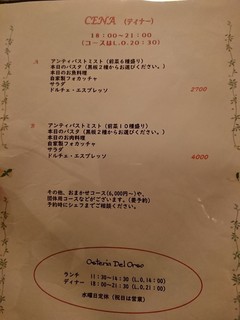 CENA (ディナー)
18：00～21：00
(コースはL.O.20：30)
A アンティパストミスト (前菜6種盛り)
本日のパスタ (黒板2種からお選びください。)
本日のお魚料理
自家製フォカッチャ
サラダ
ドルチェ・エスプレッソ 2700
B アンティパストミスト (前菜10種盛り)
本日のパスタ (黒板2種からお選びください。)
本日のお肉料理
自家製フォカッチャ
サラダ
ドルチェ・エスプレッソ 4000
その他、おまかせコース(6,000円～)や、
団体用コースなどございます。(要予約)
予約時にシェフまでご相談ください。
Osteria Del Orso
ランチ 11：30～14：30 (L.O,14：00)
ディナー 18：00～21：30 (L.O.21：00)
水曜日定休 (祝日は営業)